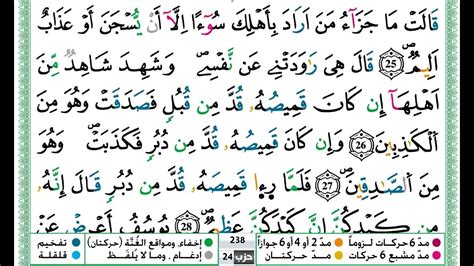 قَالَتْ مَا جَزَآءُ مَنَ اَرَادَ بِأَهْلِكَ سُوٓءًا اِلَّآ أَنْ يُّسْجَنَ أَوْ عَذَابٌ
اَلِيمٌ 25 قَالَ هِيَ رَٰوَدَتْنِے عَن نَّفْسِے وَشَهِدَ شَاهِدٌ مِّنَ
اَهْلِهَآ إِن كَانَ قَمِيصُهُۥ قُدَّ مِن قُبُلٍ فَصَدَقَتْ وَهُوَ مِنَ
اَلْكَٰذِبِينَ 26 وَإِن كَانَ قَمِيصُهُۥ قُدَّ مِن دُبُرٍ فَكَذَبَتْ وَهُوَ
مِنَ اَلصَّٰدِقِينَ 27 فَلَمَّا رَءٰا قَمِيصَهُۥ قُدَّ مِن دُبُرٍ قَالَ إِنَّهُۥ
مِن كَيْدِكُنَّ إِنَّ كَيْدَكُنَّ عَظِيمٌ 28 يُوسُفُ أَعْرِضْ عَنْ
مدّ 6 حركات لزوماً مدّ 2 أو 4 أو 6 جوازاً 238 إخفاء، ومواقع الغُنَّة (حركتان) تفخيم
مدّ مشبع 6 حركات مدّ حركتان حزب 24 إدغام، وما لا يُلفَظ قلقلة